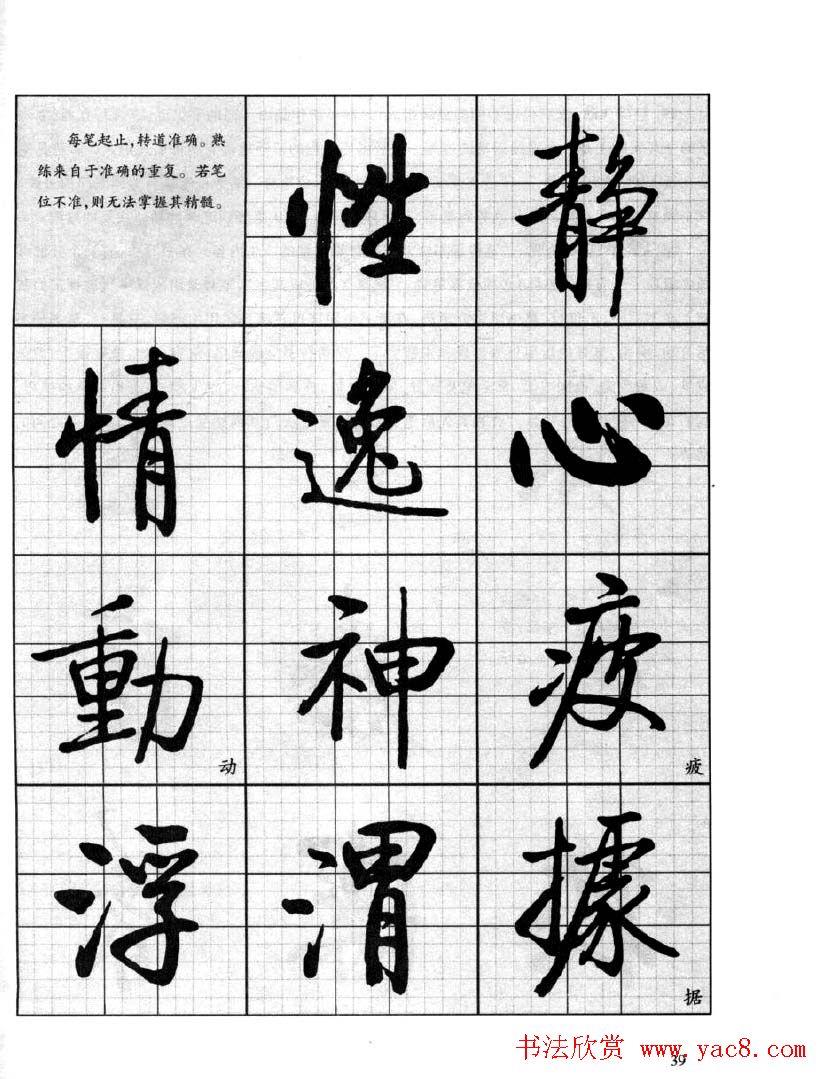 每笔起止,转道准确。熟
练来自于准确的重复。若笔
位不准,则无法掌握其精髓。
性静
情逸心
動神疲
动 疲
浮渭據
据
书法欣赏 www.yac8.com
39